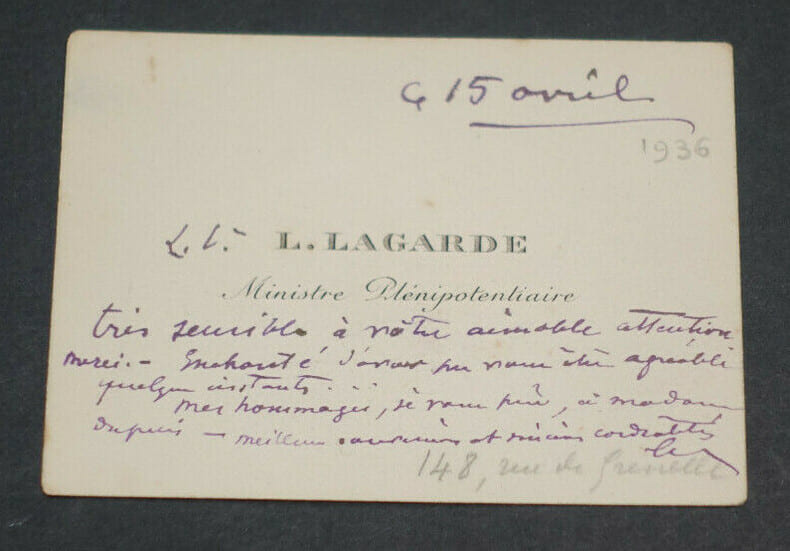 15 avril
1936
L. LAGARDE
Ministre Plénipotentiaire
très sensible à votre aimable attention
merci. — Enchanté d'avoir pu vous être agréable
quelques instants.
mes hommages, je vous prie, à madame
Dupuis — meilleurs souvenirs et
148, rue de Grenelle